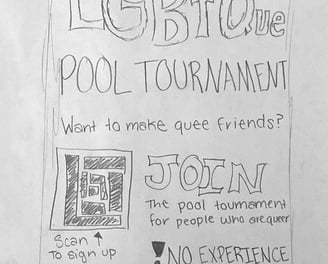 LGBTQue
POOL TOURNAMENT
Want to make quee friends?
JOIN
The pool tournament
for people who are queer
Scan ↑
To sign up
! NO EXPERIENCE